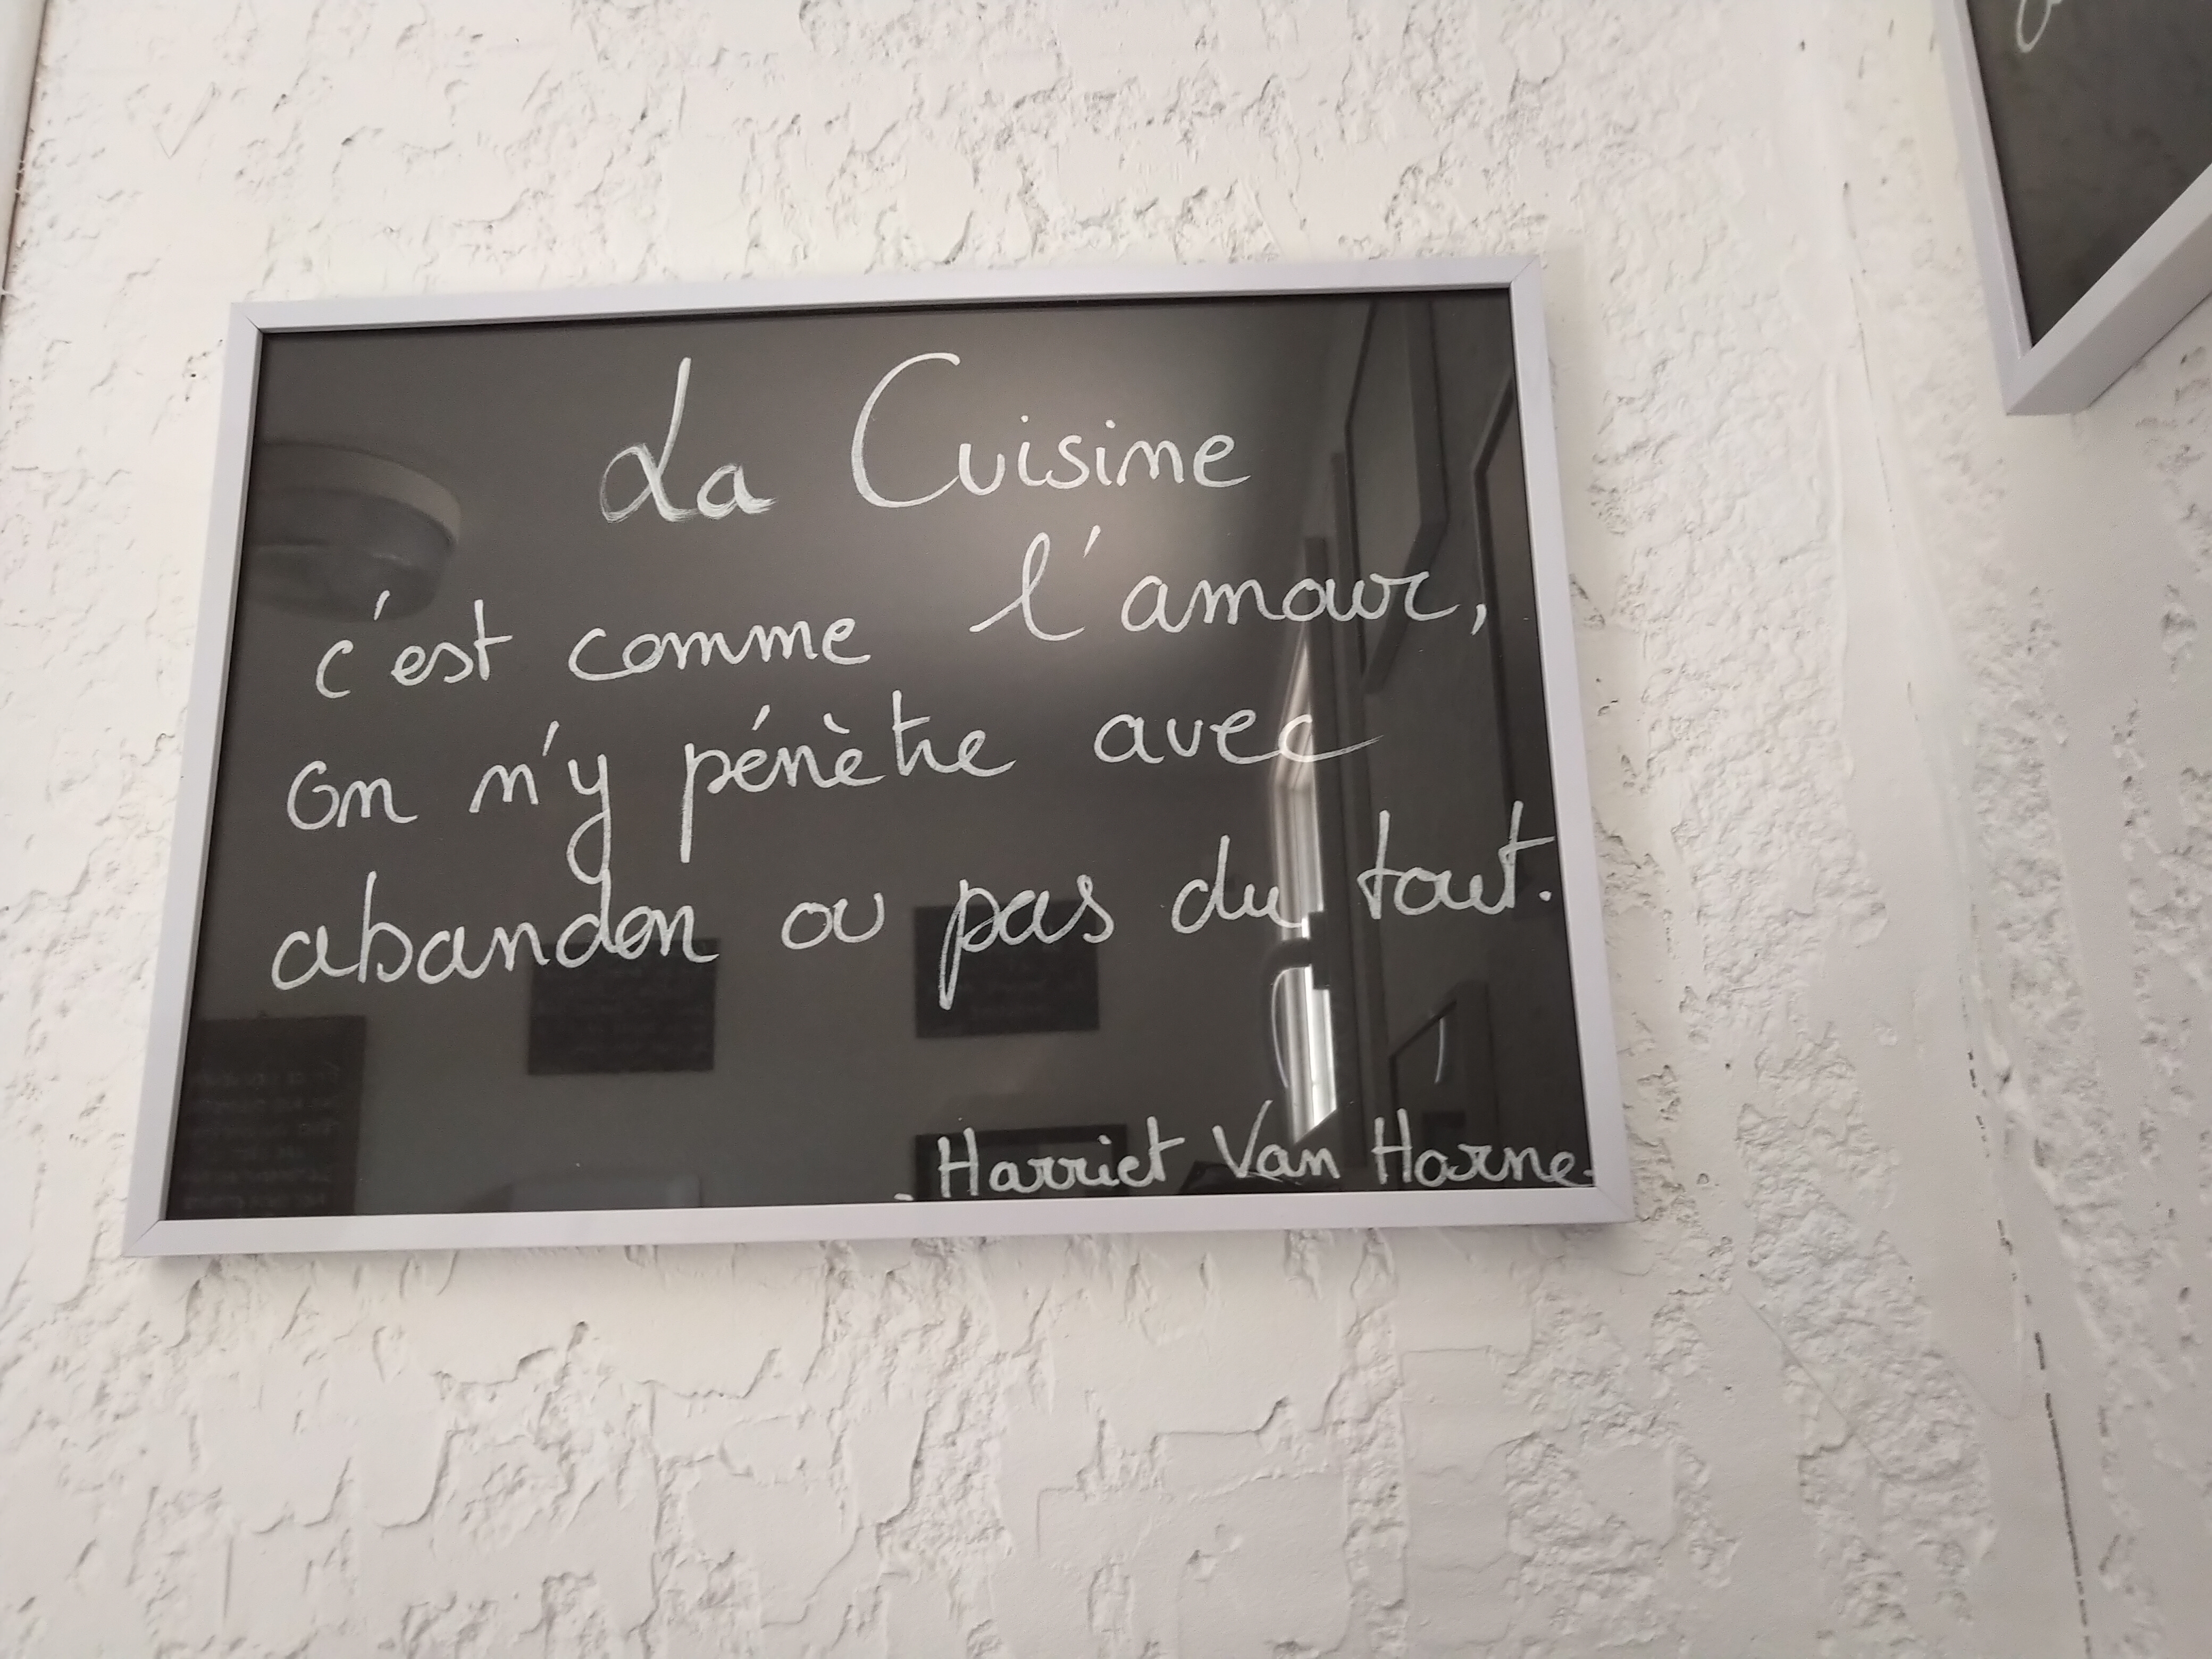 La Cuisine
c'est comme l'amour,
on n'y pénètre avec
abandon ou pas du tout.
- Harriet Van Horne-